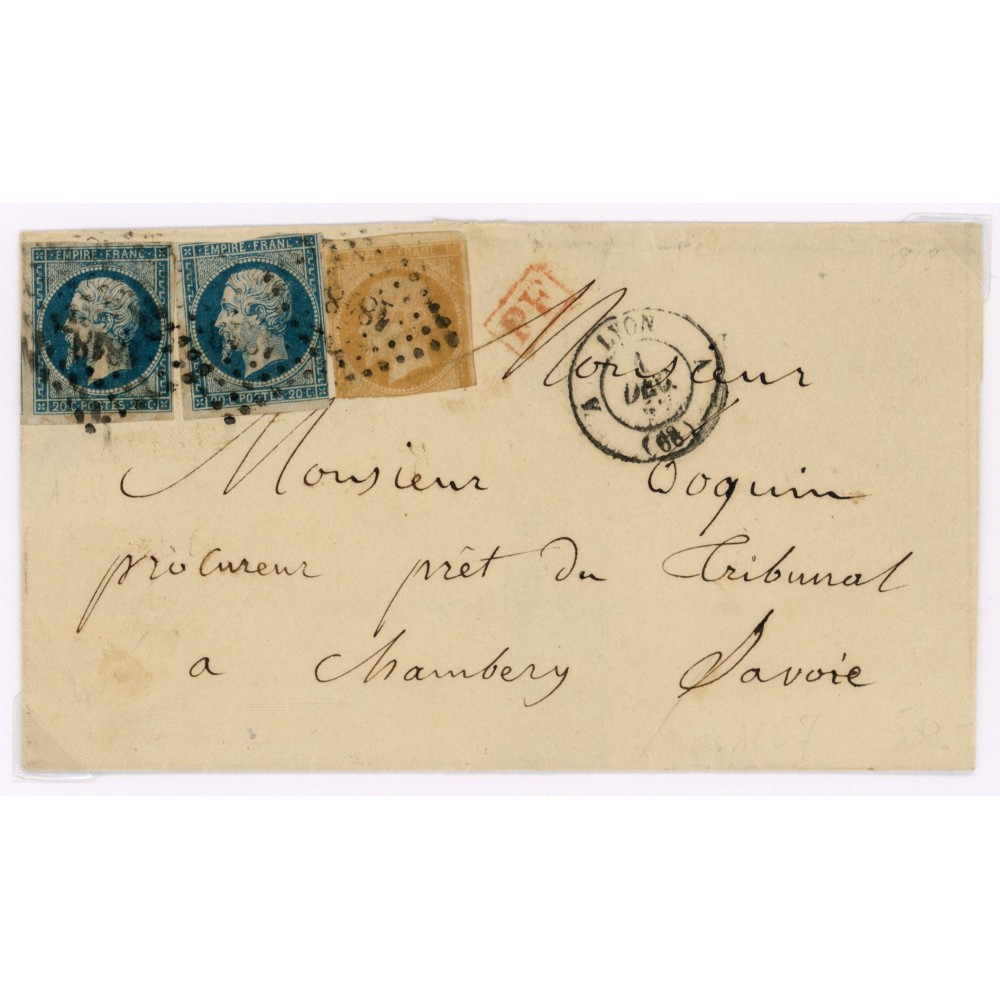 EMPIRE FRANC
20 C POSTES 20 C
EMPIRE FRANC
20 C POSTES 20 C
PF
LYON
1
DEC.
(68)
A
Monsieur
Monsieur Doquin
procureur prêt du Tribunal
a Chambery Savoie